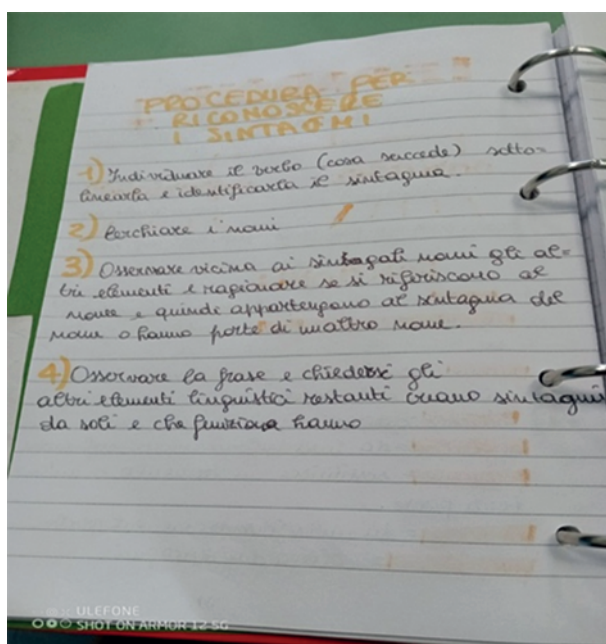 PROCEDURA PER
RICONOSCERE
I SINTAGMI
1) Individuare il verbo (cosa succede) sotto=
linearla e identificarla il sintagma.
2) Cerchiare i nomi
3) Osservare vicina ai nomi gli al=
tri elementi e ragionare se si riferiscono al
nome e quindi appartengano al sintagma del
nome o hanno parte di un altro nome.
4) Osservare la frase e chiedersi gli
altri elementi linguistici restanti creano sintagmi
da soli e che funzione hanno
ULEFONE
SHOT ON ARMOR 12 5G